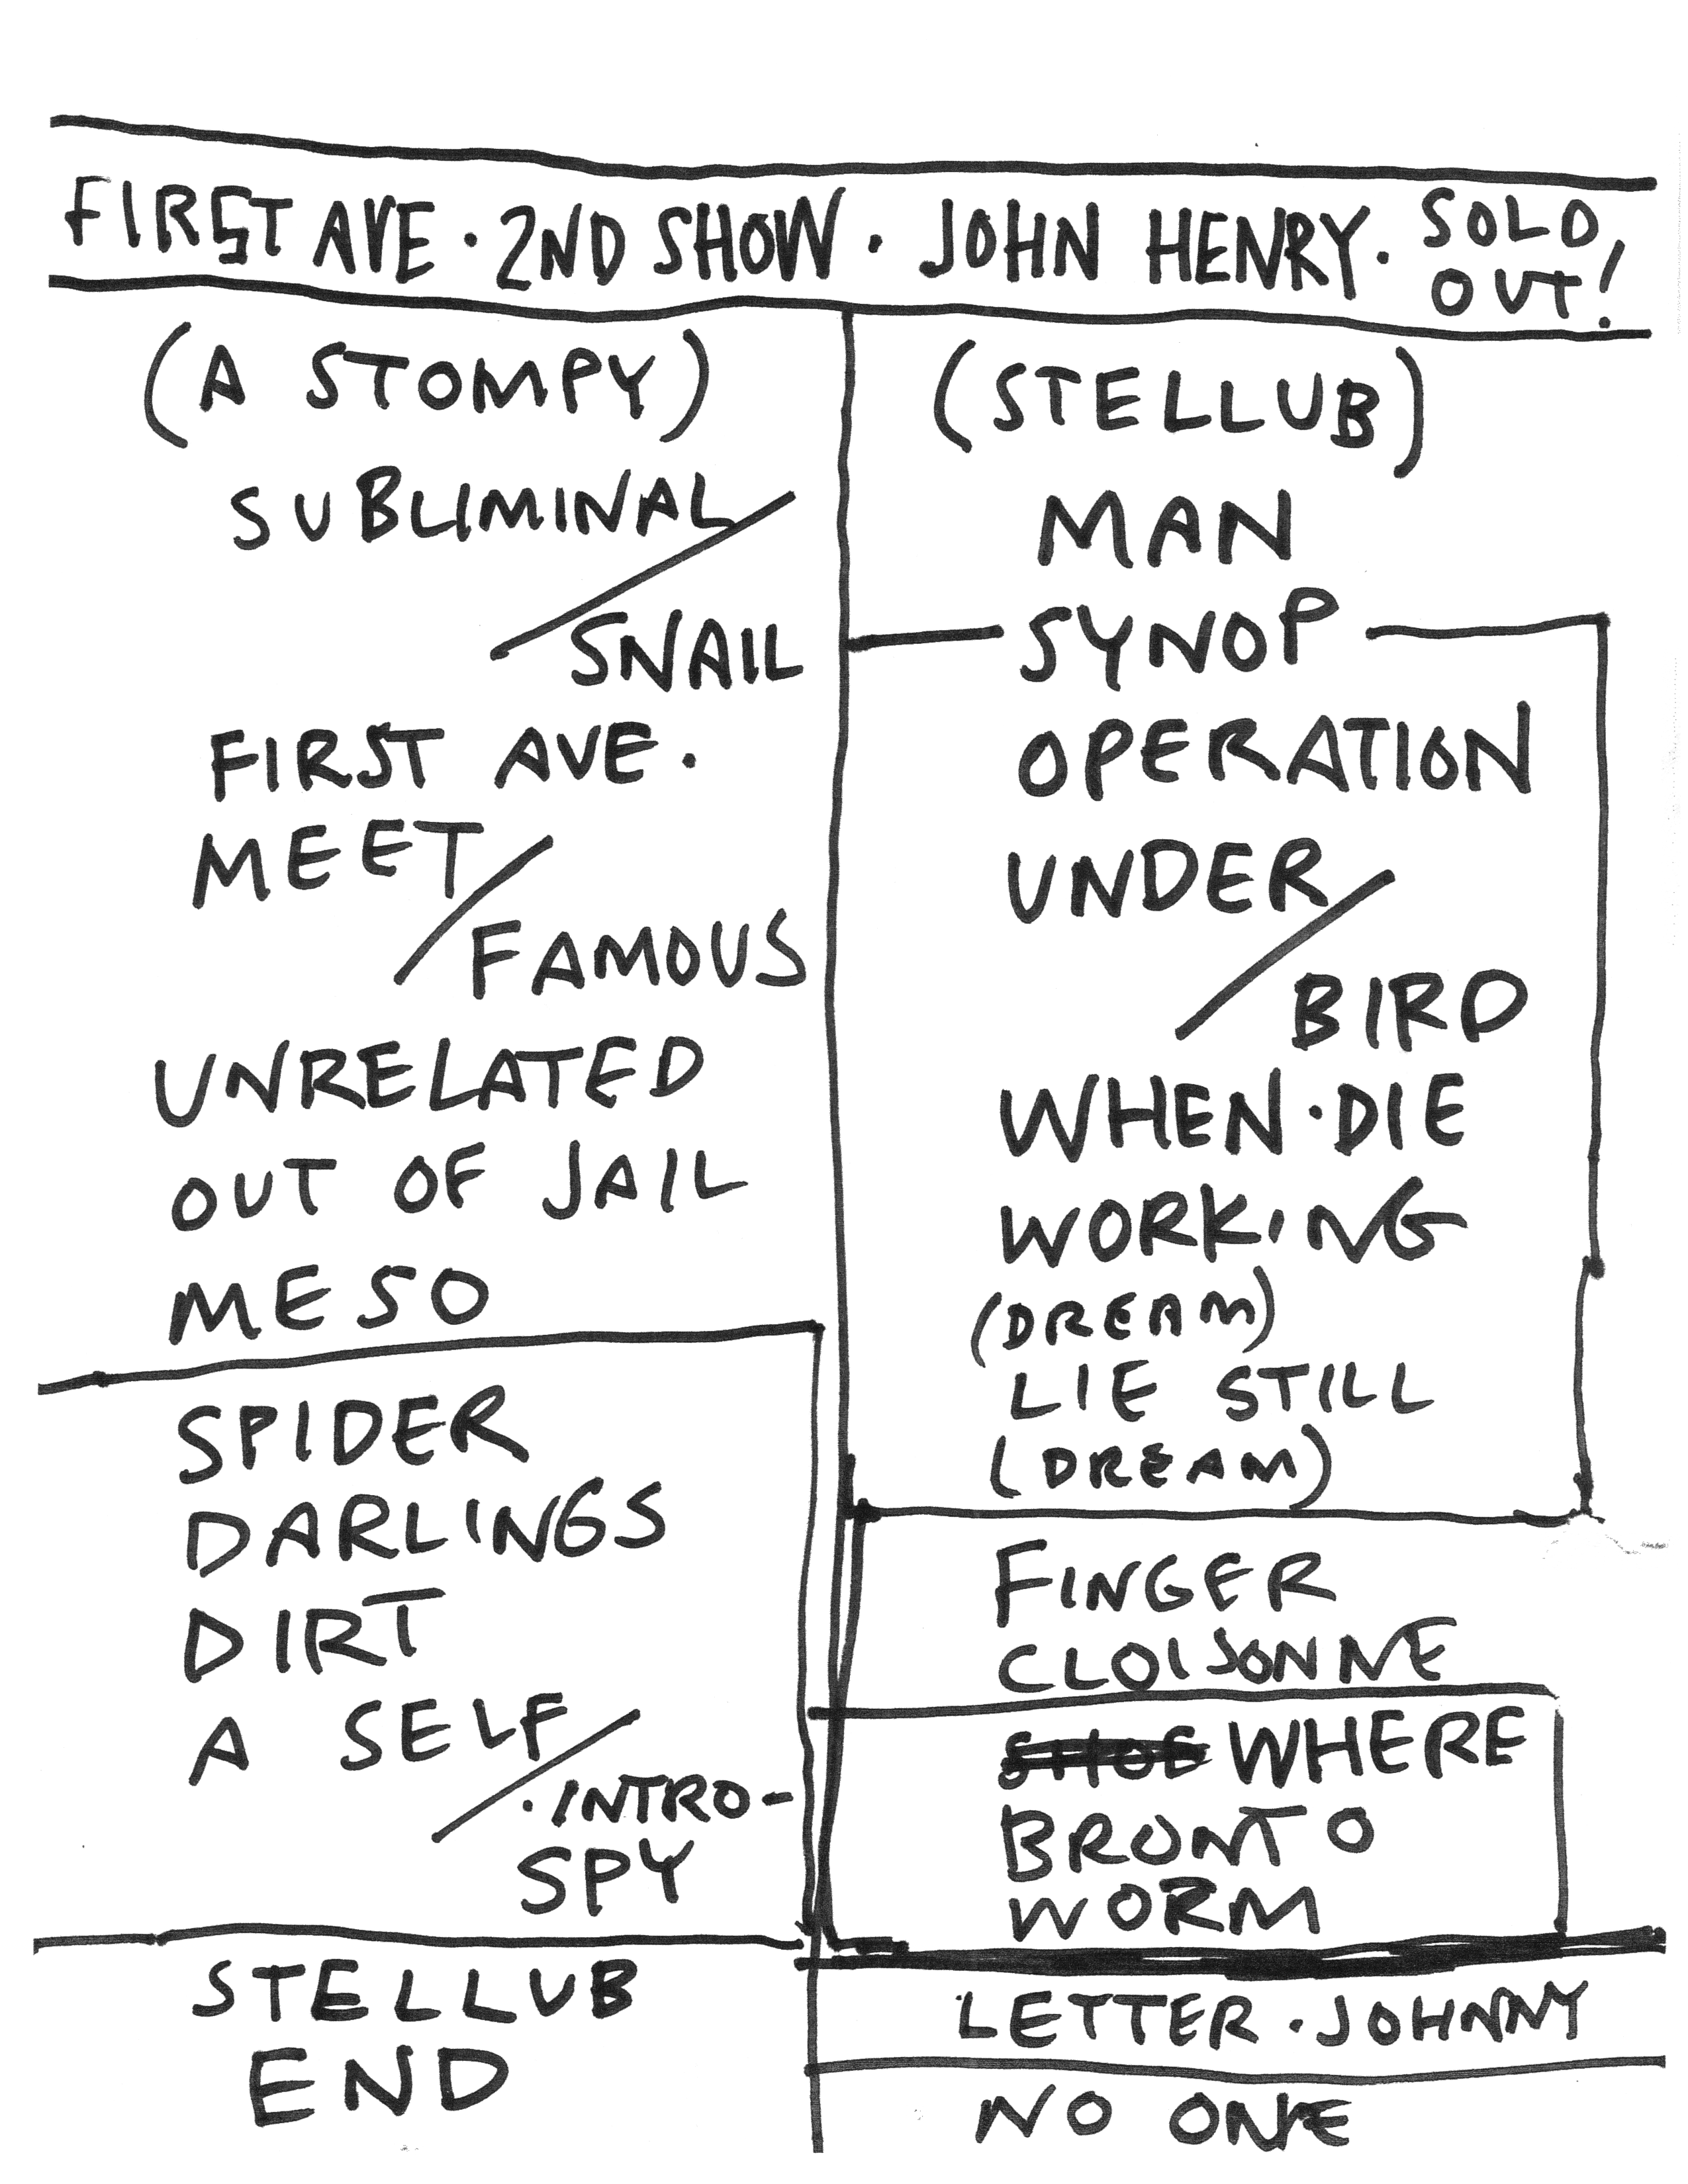 FIRST AVE · 2ND SHOW · JOHN HENRY · SOLD OUT!
(A STOMPY)
SUBLIMINAL/
SNAIL
FIRST AVE.
MEET/
FAMOUS
UNRELATED
OUT OF JAIL
MESO
SPIDER
DARLINGS
DIRT
A SELF/
·INTRO-
SPY
STELLUB
END
(STELLUB)
MAN
SYNOP
OPERATION
UNDER/
BIRD
WHEN·DIE
WORKING
(DREAM)
LIE STILL
(DREAM)
FINGER
CLOISONNE
WHERE
BRONTO
WORM
LETTER · JOHNNY
NO ONE